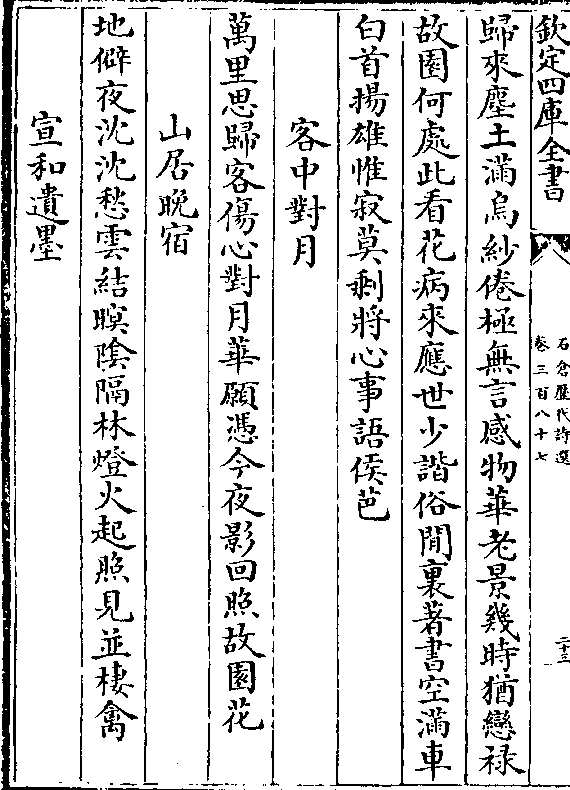 欽定四庫全書
石倉歷代詩選
卷三百八十七
二十三
歸來塵土滿烏紗倦極無言感物華老景幾時猶戀禄
故園何處此看花病來應世少諧俗閒裏著書空滿車
白首揚雄惟寂莫剩將心事語侯芭
客中對月
萬里思歸客傷心對月華願憑今夜影回照故園花
山居晚宿
地僻夜沈沈愁雲結暝陰隔林燈火起照見並棲禽
宣和遺墨